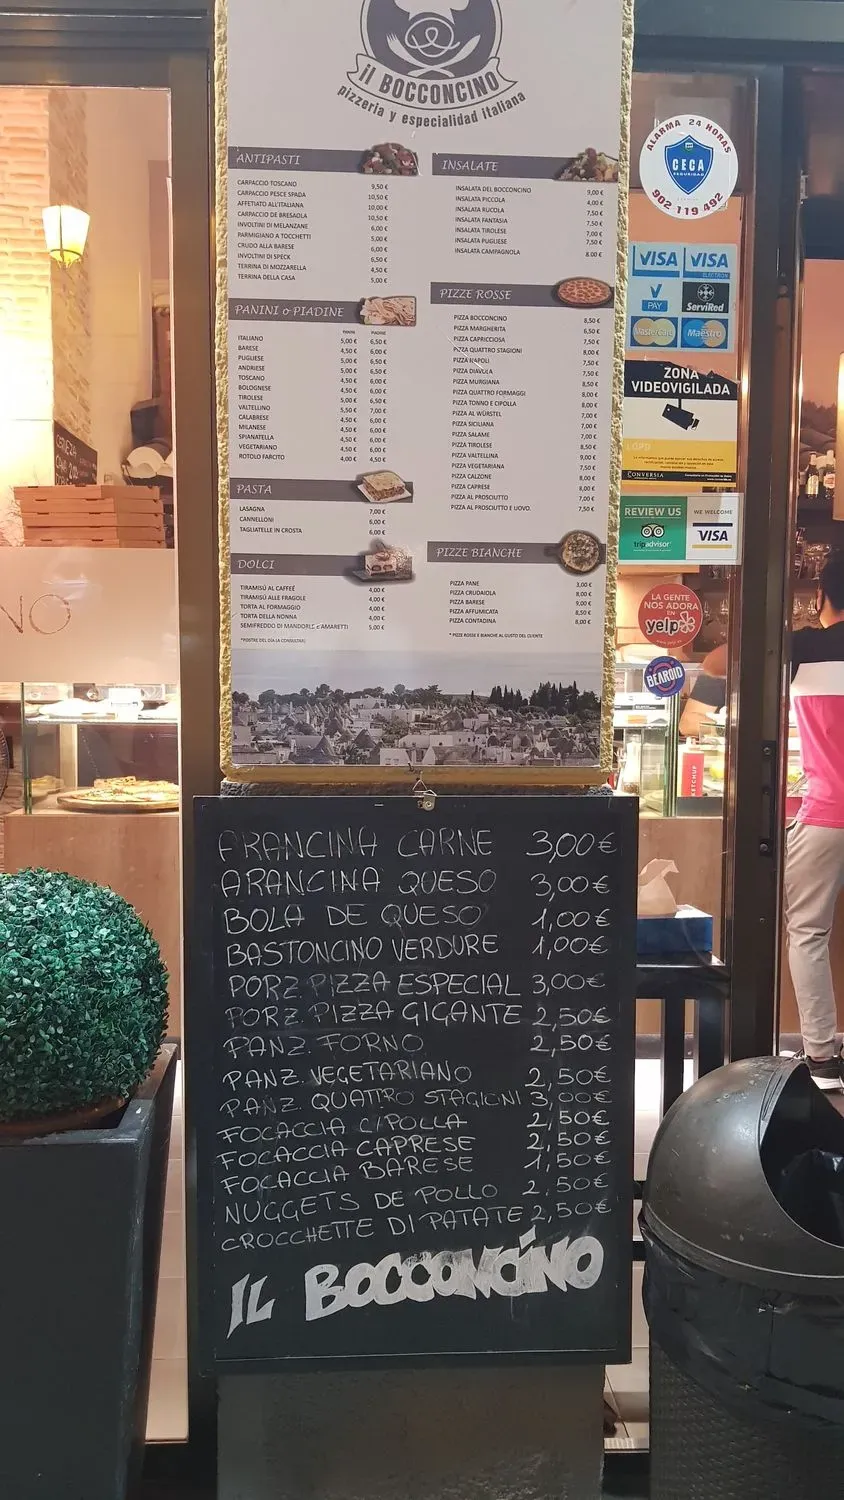 il BOCCONCINO
pizzeria y especialidad italiana
ANTIPASTI
CARPACCIO TOSCANO 9,50 €
CARPACCIO PESCE SPADA 10,50 €
AFFETIATO ALL'ITALIANA 10,00 €
CARPACCIO DE BRESAOLA 10,50 €
INVOLTINI DI MELANZANE 6,00 €
PARMIGIANO A TOCCHETTI 5,00 €
CRUDO ALLA BARESE 6,00 €
INVOLTINI DI SPECK 6,50 €
TERRINA DI MOZZARELLA 4,50 €
TERRINA DELLA CASA 5,00 €
PANINI o PIADINE
PANINI PIADINE
ITALIANO 5,00 € 6,50 €
BARESE 4,50 € 6,00 €
PUGLIESE 5,00 € 6,50 €
ANDRIESE 5,00 € 6,50 €
TOSCANO 4,50 € 6,00 €
BOLOGNESE 4,50 € 6,00 €
TIROLESE 5,00 € 6,50 €
VALTELLINO 5,50 € 7,00 €
CALABRESE 4,50 € 6,00 €
MILANESE 4,50 € 6,00 €
SPIANATELLA 4,50 € 6,00 €
VEGETARIANO 4,50 € 6,00 €
ROTOLO FARCITO 4,00 € 4,50 €
PASTA
LASAGNA 7,00 €
CANNELLONI 6,00 €
TAGLIATELLE IN CROSTA 6,00 €
DOLCI
TIRAMISÚ AL CAFFEÉ 4,00 €
TIRAMISÚ ALLE FRAGOLE 4,00 €
TORTA AL FORMAGGIO 4,00 €
TORTA DELLA NONNA 4,00 €
SEMIFREDDO DI MANDORLE E AMARETTI 5,00 €
*POSTRE DEL DÍA (A CONSULTAR)
INSALATE
INSALATA DEL BOCCONCINO 9,00 €
INSALATA PICCOLA 4,00 €
INSALATA RUCOLA 7,50 €
INSALATA FANTASIA 7,50 €
INSALATA TIROLESE 7,00 €
INSALATA PUGLIESE 7,50 €
INSALATA CAMPAGNOLA 8,00 €
PIZZE ROSSE
PIZZA BOCCONCINO 8,50 €
PIZZA MARGHERITA 6,50 €
PIZZA CAPRICCIOSA 7,50 €
PIZZA QUATTRO STAGIONI 8,00 €
PIZZA NAPOLI 7,50 €
PIZZA DIAVOLA 7,50 €
PIZZA MURGIANA 8,50 €
PIZZA QUATTRO FORMAGGI 8,00 €
PIZZA TONNO E CIPOLLA 8,00 €
PIZZA AL WÜRSTEL 7,00 €
PIZZA SICILIANA 7,00 €
PIZZA SALAME 7,00 €
PIZZA TIROLESE 8,50 €
PIZZA VALTELLINA 9,00 €
PIZZA VEGETARIANA 7,50 €
PIZZA CALZONE 8,00 €
PIZZA CAPRESE 8,00 €
PIZZA AL PROSCIUTTO 7,00 €
PIZZA AL PROSCIUTTO E UOVO. 7,50 €
PIZZE BIANCHE
PIZZA PANE 3,00 €
PIZZA CRUDAIOLA 8,00 €
PIZZA BARESE 9,00 €
PIZZA AFFUMICATA 8,50 €
PIZZA CONTADINA 8,00 €
* PIZZE ROSSE E BIANCHE AL GUSTO DEL CLIENTE
ARANCINA CARNE 3,00€
ARANCINA QUESO 3,00€
BOLA DE QUESO 1,00€
BASTONCINO VERDURE 1,00€
PORZ. PIZZA ESPECIAL 3,00€
PORZ. PIZZA GIGANTE 2,50€
PANZ. FORNO 2,50€
PANZ. VEGETARIANO 2,50€
PANZ. QUATTRO STAGIONI 3,00€
FOCACCIA CIPOLLA 2,50€
FOCACCIA CAPRESE 2,50€
FOCACCIA BARESE 1,50€
NUGGETS DE POLLO 2,50€
CROCCHETTE DI PATATE 2,50€
IL BOCCONCINO
ALARMA 24 HORAS
CECA
SEGURIDAD
902 119 492
VISA VISA
ELECTRON
V PAY ServiRed
MasterCard Maestro
ZONA
VIDEOVIGILADA
LOPD
CONVERSIA
REVIEW US
tripadvisor
WE WELCOME
VISA
LA GENTE
NOS ADORA
EN
yelp
BEAROID
KETCHUP
CERVEZA
NO